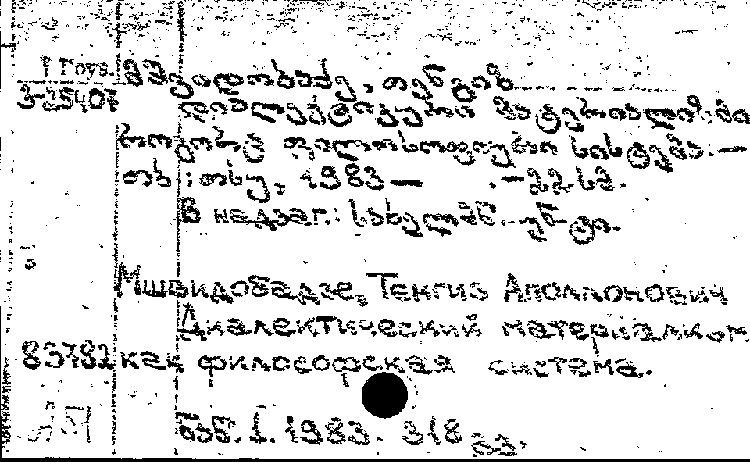 Г Груз. მშვიდობაძე, თენგიზ
3-25407 დიალექტიკური მატერიალიზმი
როგორც ფილოსოფიური სისტემა.—
თბ : თსუ, 1983 — .—22 სმ.
В надзаг.: სახელმწ. უნ-ტი.
Мшвидобадзе, Тенгиз Аполлонович
Диалектический материализм
83782 как философская система.
ნაწ. 1. 1983. 318 გვ.